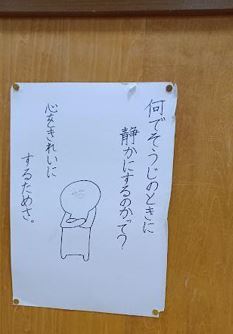 何でそうじのときに
静かにするのかって?
心をきれいに
するためさ。